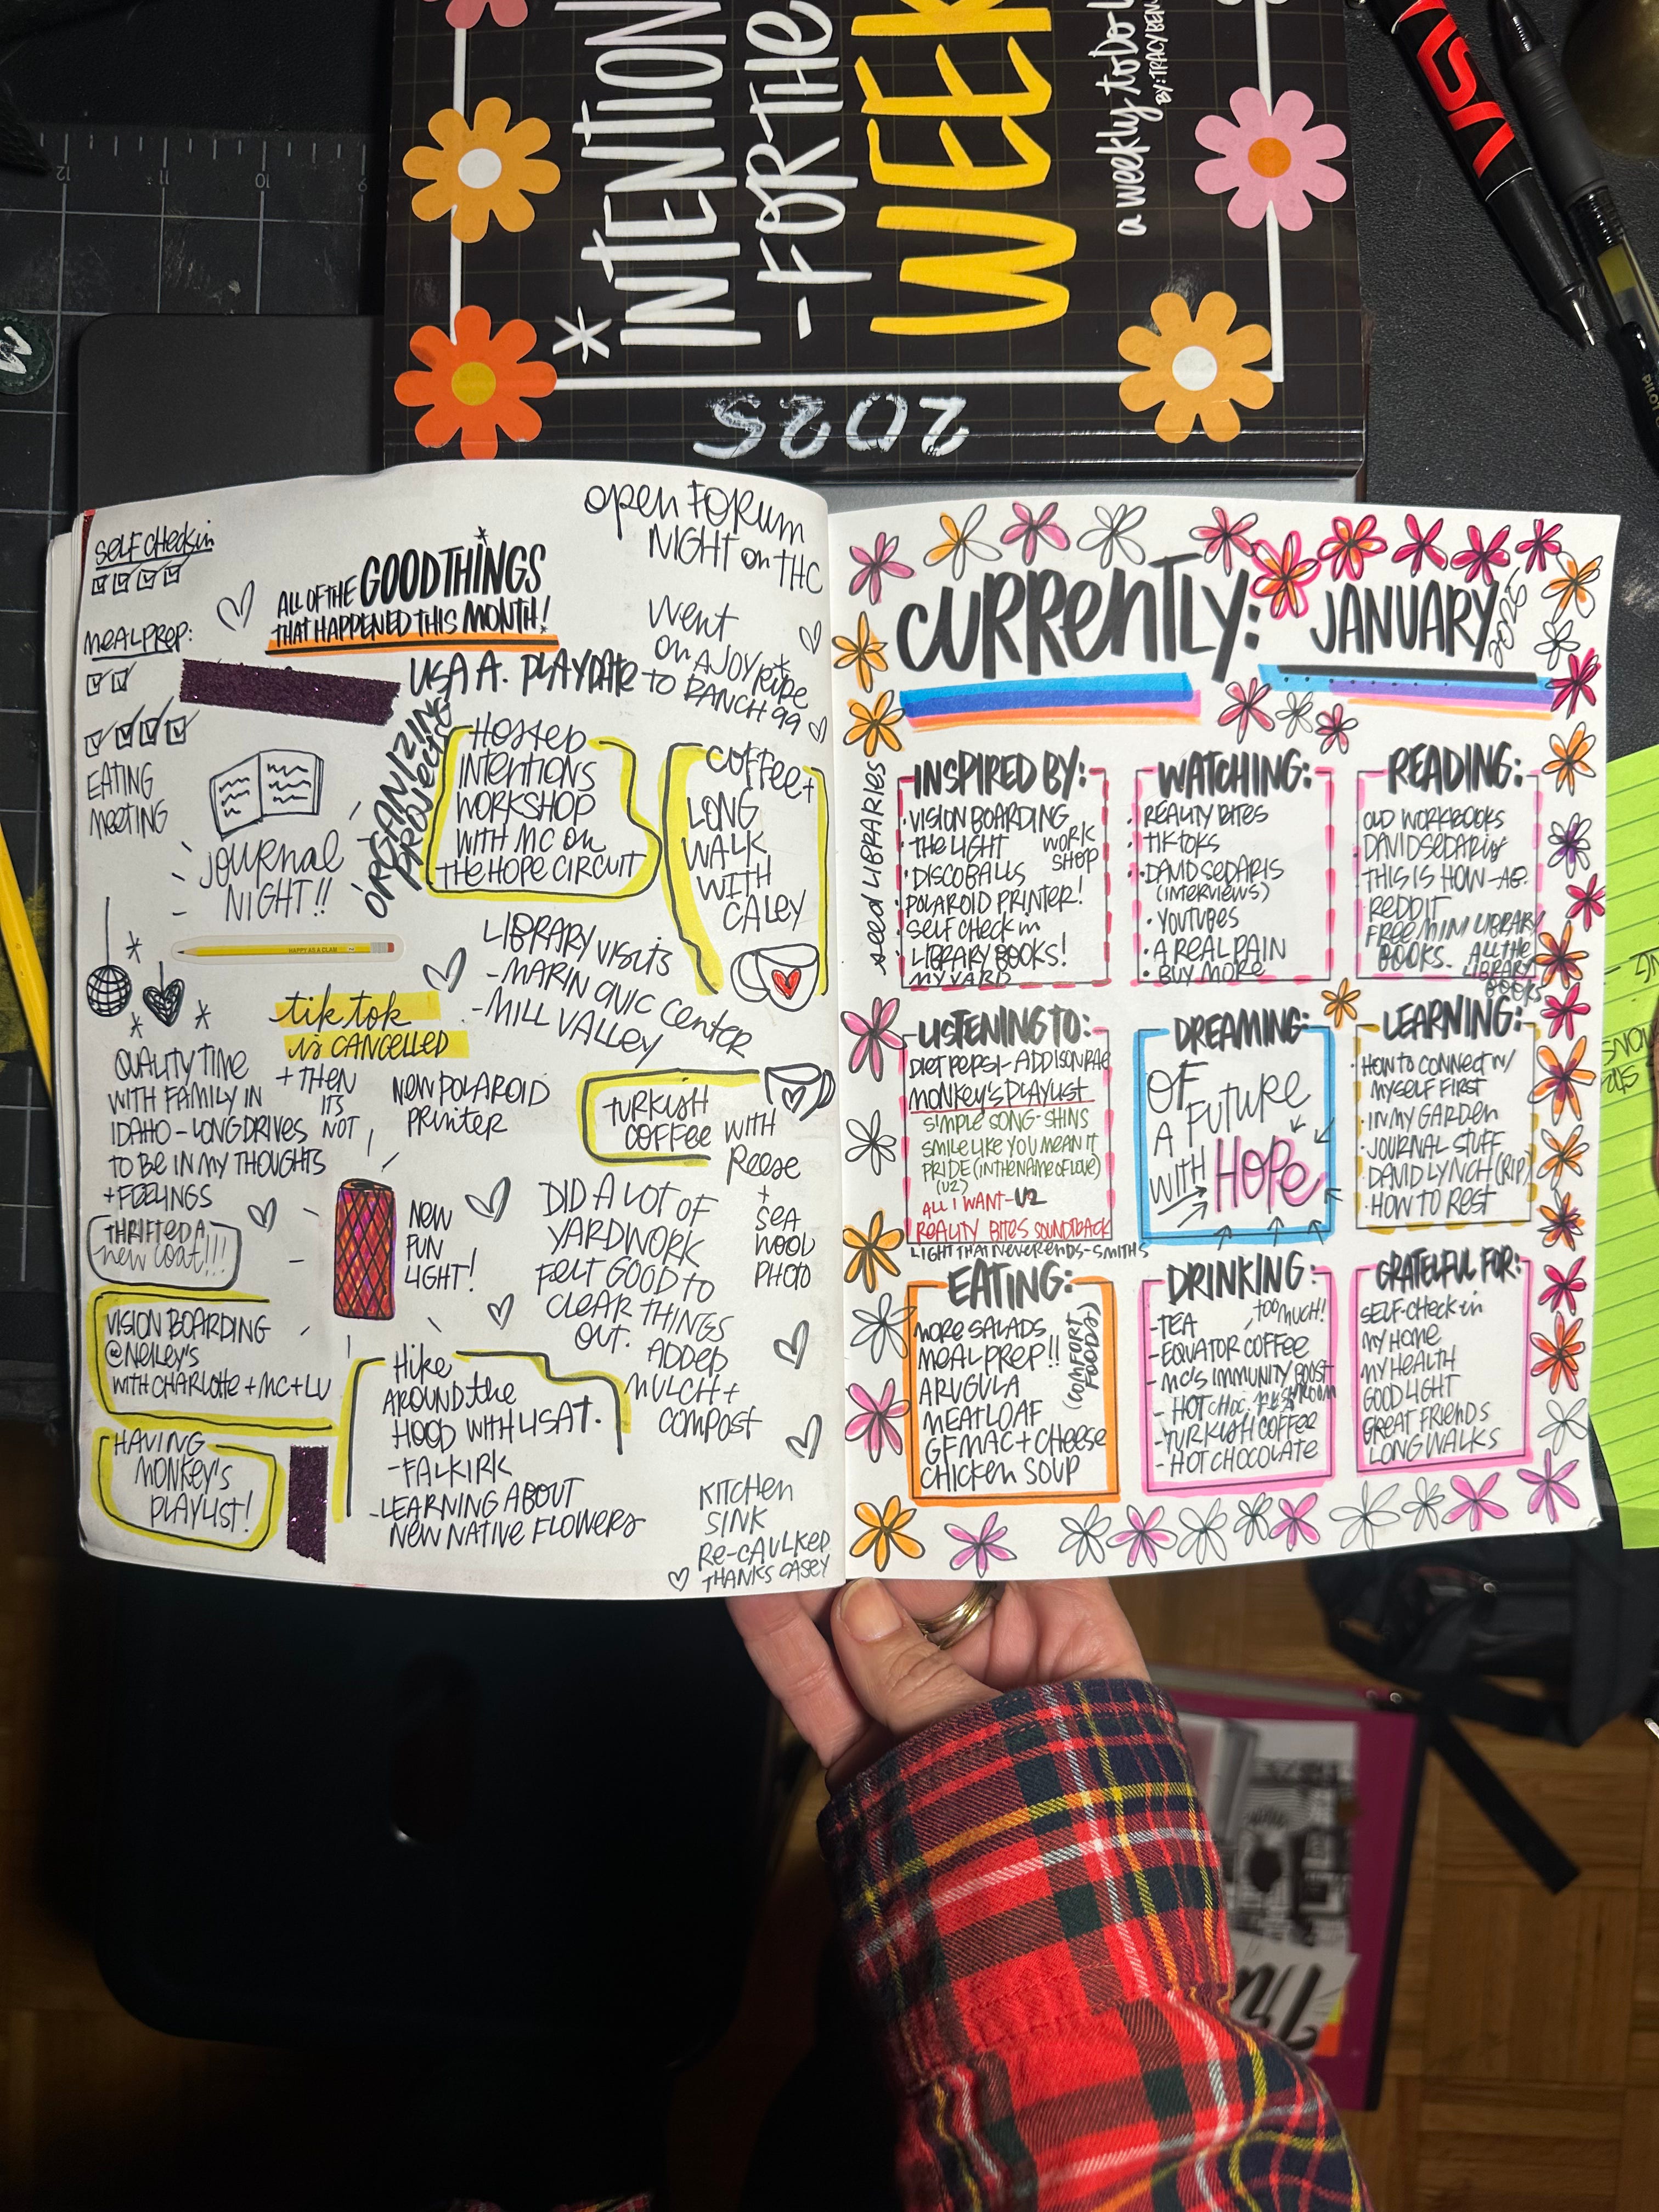 * INTENTION
- FOR THE
WEEK
a weekly to Do L
BY: TRACY BEN
2025
12 11 10 9
PILOT
self check in
MEAL PREP:
EATING
MEETING
ALL OF THE GOOD THINGS
THAT HAPPENED THIS MONTH!
open FORUM
NIGHT on THC
Went
on A JOY RIDE
TO RANCH 99
LISA A. PLAYDATE
ORGANIZING
PROJECTS
JOURNAL
NIGHT!!
HOSTED
INTENTIONS
WORKSHOP
WITH MC ON
THE HOPE CIRCUIT
COFFEE +
LONG
WALK
WITH
CALEY
HAPPY AS A CLAM
LIBRARY VISITS
- MARIN CIVIC CENTER
- MILL VALLEY
tik tok
is CANCELLED
+ THEN
ITS
NOT
QUALITY TIME
WITH FAMILY IN
IDAHO - LONG DRIVES
TO BE IN MY THOUGHTS
+ FEELINGS
NEW POLAROID
PRINTER
TURKISH
COFFEE WITH
Reese
+
SEA
WOOD
PHOTO
THRIFTED A
new coat!!!
NEW
FUN
LIGHT!
DID A LOT OF
YARDWORK
FELT GOOD TO
CLEAR THINGS
OUT. ADDED
MULCH +
COMPOST
VISION BOARDING
@NEILEY'S
WITH CHARLOTTE + MC + LV
HAVING
MONKEY'S
PLAYLIST!
HIKE
AROUND the
HOOD WITH LISA T.
- FALKIRK
- LEARNING ABOUT
NEW NATIVE FLOWERS
KITCHEN
SINK
RE-CAULKED
THANKS CASEY
CURRENTLY: JANUARY 2025
seed LIBRARIES
INSPIRED BY:
• VISION BOARDING
WORK
SHOP
• THE LIGHT
• DISCO BALLS
• POLAROID PRINTER!
• SELF CHECK IN
• LIBRARY BOOKS!
MY YARD
WATCHING:
• REALITY BITES
• TIK TOKS
• DAVID SEDARIS
(INTERVIEWS)
• YOUTUBES
• A REAL PAIN
• BUY MORE
READING:
OLD WORKBOOKS
DAVID SEDARIS
THIS IS HOW - AB.
REDDIT
FREE MINI LIBRARY
BOOKS. ALL THE
LIBRARY
BOOKS
LISTENING TO:
DIET PEPSI - ADDISON RAE
MONKEY'S PLAYLIST
SIMPLE SONG - SHINS
SMILE LIKE YOU MEAN IT
PRIDE (IN THE NAME OF LOVE)
(U2)
ALL I WANT - U2
REALITY BITES SOUNDTRACK
LIGHT THAT NEVER ENDS - SMITHS
DREAMING:
OF
A FUTURE
WITH HOPE
LEARNING:
• HOW TO CONNECT W/
MYSELF FIRST
• IN MY GARDEN
• JOURNAL STUFF
• DAVID LYNCH (RIP)
• HOW TO REST
EATING:
MORE SALADS
MEAL PREP!!
ARUGULA
MEATLOAF
GF MAC + CHEESE
CHICKEN SOUP
(COMFORT
FOODS)
DRINKING:
- TEA
TOO MUCH!
- EQUATOR COFFEE
- MC'S IMMUNITY BOOST
- TURKISH COFFEE
- HOT CHOCOLATE
GRATEFUL FOR:
SELF-check in
MY HOME
MY HEALTH
GOOD LIGHT
GREAT FRIENDS
LONG WALKS